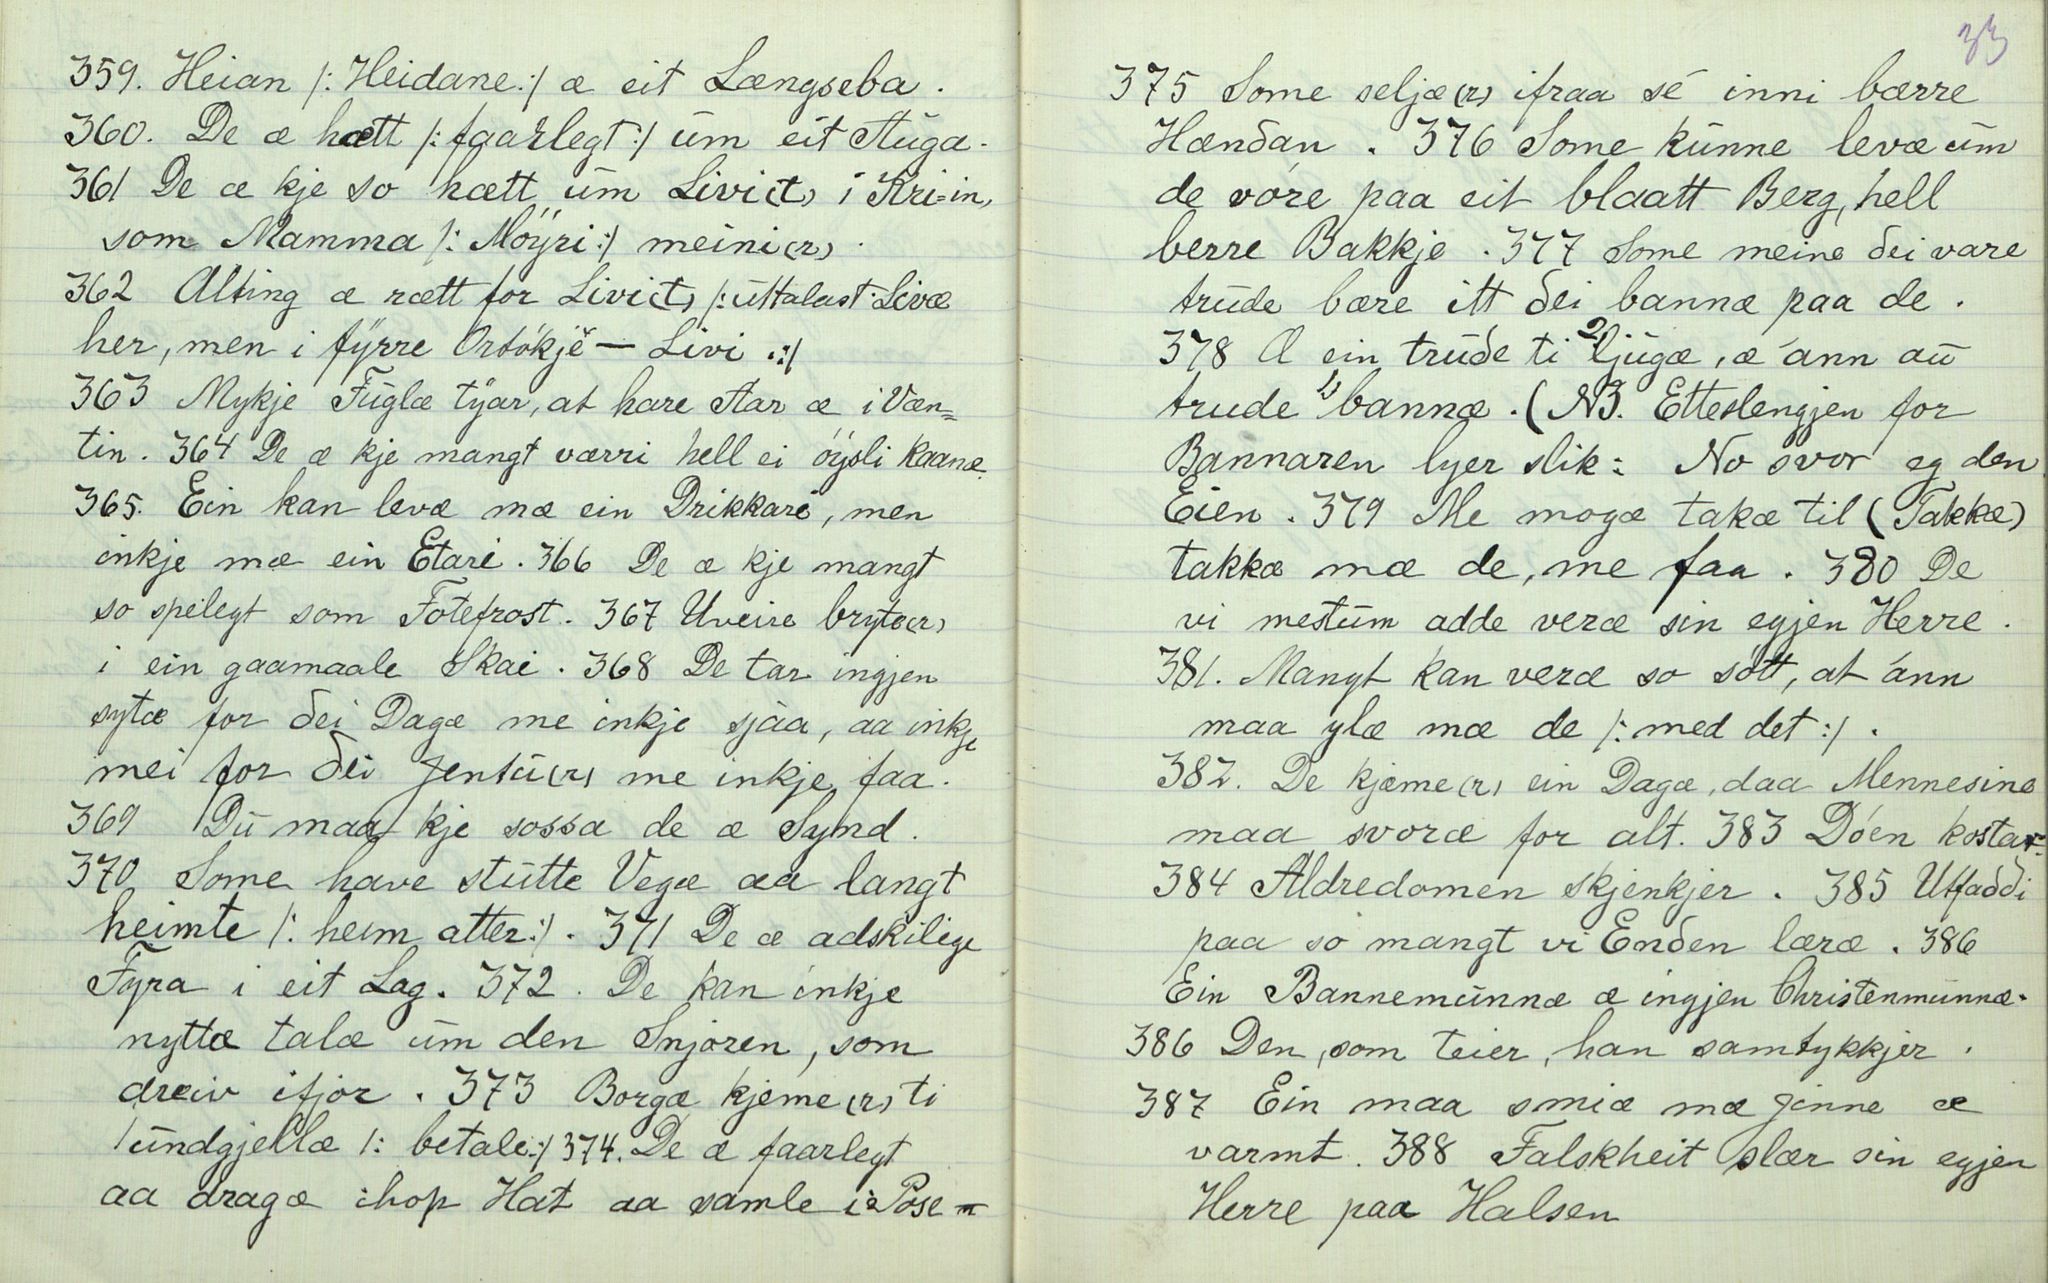 359. Heian /: Heidane :/ æ eit Længseba.
360. De æ hætt /: faarlegt :/ um eit Auga.
361 De æ kje so hætt um Livi(t) i Kri=in,
som Mamma /: Möyri :/ meini(r).
362 Alting æ rætt for Livi(t) /: uttalast Livæ
her, men i fyrre Ordökjé — Livi. :/
363 Mykje Fuglæ tyar, at hare Aar æ i Væn=
tin. 364 De æ kje mangt værri hell ei öysli Kaanæ.
365. Ein kan levæ mæ ein Drikkari, men
inkje mæ ein Etari. 366 De æ kje mangt
so spelegt som Fotefrost. 367 Uveire bryte(r)
i ein gaamaale Skai. 368 De tar ingjen
sytæ for dei Dagæ me inkje sjåa, aa inkje
mei for dei Jentu(r) me inkje faa.
369 Du maa kje sossa de æ Synd.
370 Some have stutte Vegæ aa langt
heimte /: heim atter :/. 371 De æ adskilige
Fyra i eit Lag. 372. De kan inkje
nyttæ talæ um den Snjoren, som
dreiv ifjor. 373 Borgæ kjeme(r) ti
undgjellæ /: betale :/ 374. De æ faarlegt
aa dragæ ihop Hat aa samle i Pose
33
375 Some seljæ(r) ifraa sé inni bærre
Hændan. 376 Some kunne levæ um
de vóre paa eit blaatt Berg, hell
berre Bakkje. 377 Some meine dei vare
trude bære itt dei bannæ paa de.
378 A ein trude ti 2) ljugæ, æ ann au
trude 1) bannæ. (NB. Etteslengjen for
Bannaren lyer slik: No svor eg den
Eien. 379 Me mogæ takæ til (Takkæ)
takkæ mæ de, me faa. 380 De
vi mestum adde veræ sin egjen Herre.
381. Mangt kan veræ so sött, at ann
maa ylæ mæ de /: med det :/.
382. De kjæme(r) ein Dagæ, daa Mennesine
maa svoræ for alt. 383 Döen kostar.
384 Aldredomen skjenkjer. 385 Utfaddi
paa so mangt vi Enden læræ. 386
Ein Bannemunnæ æ ingjen Christenmunnæ.
386 Den, som teier, han samtykkjer.
387 Ein maa smiæ mæ Jinne æ
varmt. 388 Falskheit slær sin egjen
Herre paa Halsen